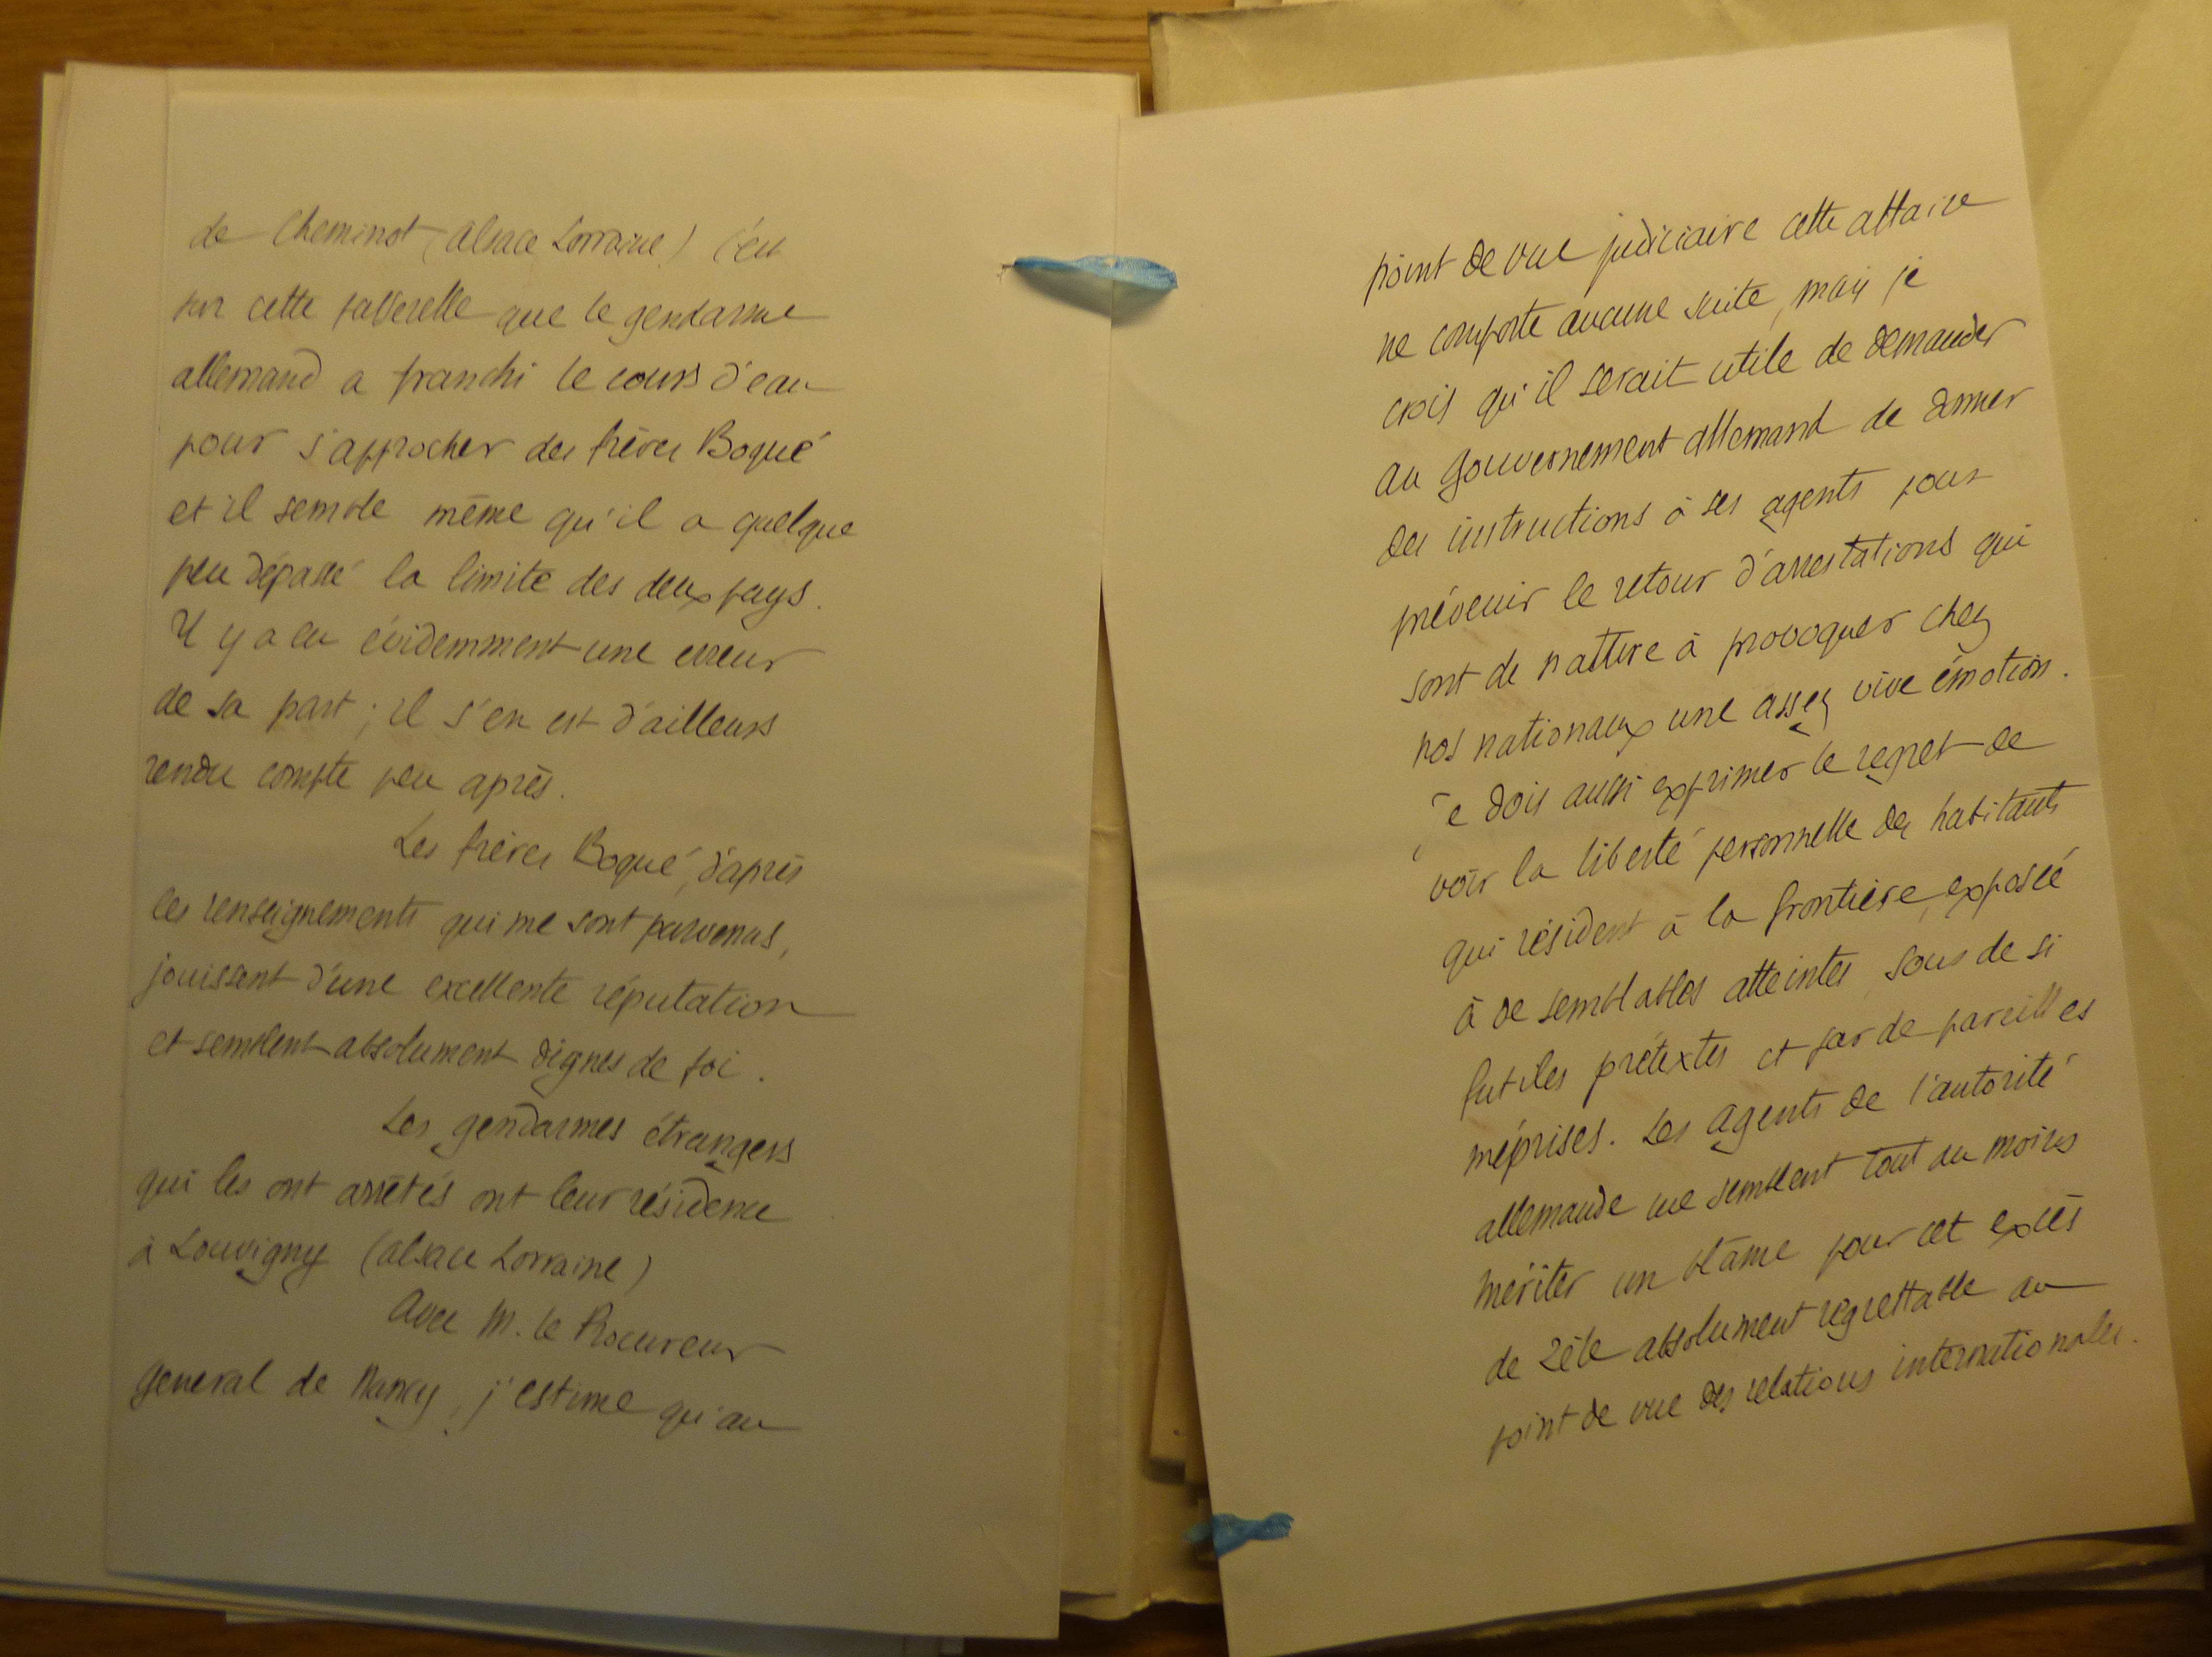 de Cheminot (Alsace Lorraine) C'est
sur cette passerelle que le gendarme
allemand a franchi le cours d'eau
pour s'approcher des frères Boqué
et il semble même qu'il a quelque
peu dépassé la limite des deux pays.
Il y a eu évidemment une erreur
de sa part ; il s'en est d'ailleurs
rendu compte peu après.
Les frères Boqué, d'après
les renseignements qui me sont parvenus,
jouissent d'une excellente réputation
et semblent absolument dignes de foi.
Les gendarmes étrangers
qui les ont arrêtés ont leur résidence
à Louvigny (Alsace Lorraine)
Avec M. le Procureur
général de Nancy, j'estime qu'au
point de vue judiciaire cette affaire
ne comporte aucune suite, mais je
crois qu'il serait utile de demander
au Gouvernement allemand de donner
des instructions à ses agents pour
prévenir le retour d'arrestations qui
sont de nature à provoquer chez
nos nationaux une assez vive émotion.
Je dois aussi exprimer le regret de
voir la liberté personnelle des habitants
qui résident à la frontière, exposée
à de semblables atteintes, sous de si
futiles prétextes et par de pareilles
méprises. Les agents de l'autorité
allemande me semblent tout au moins
mériter un blâme pour cet excès
de zèle absolument regrettable au
point de vue des relations internationales.